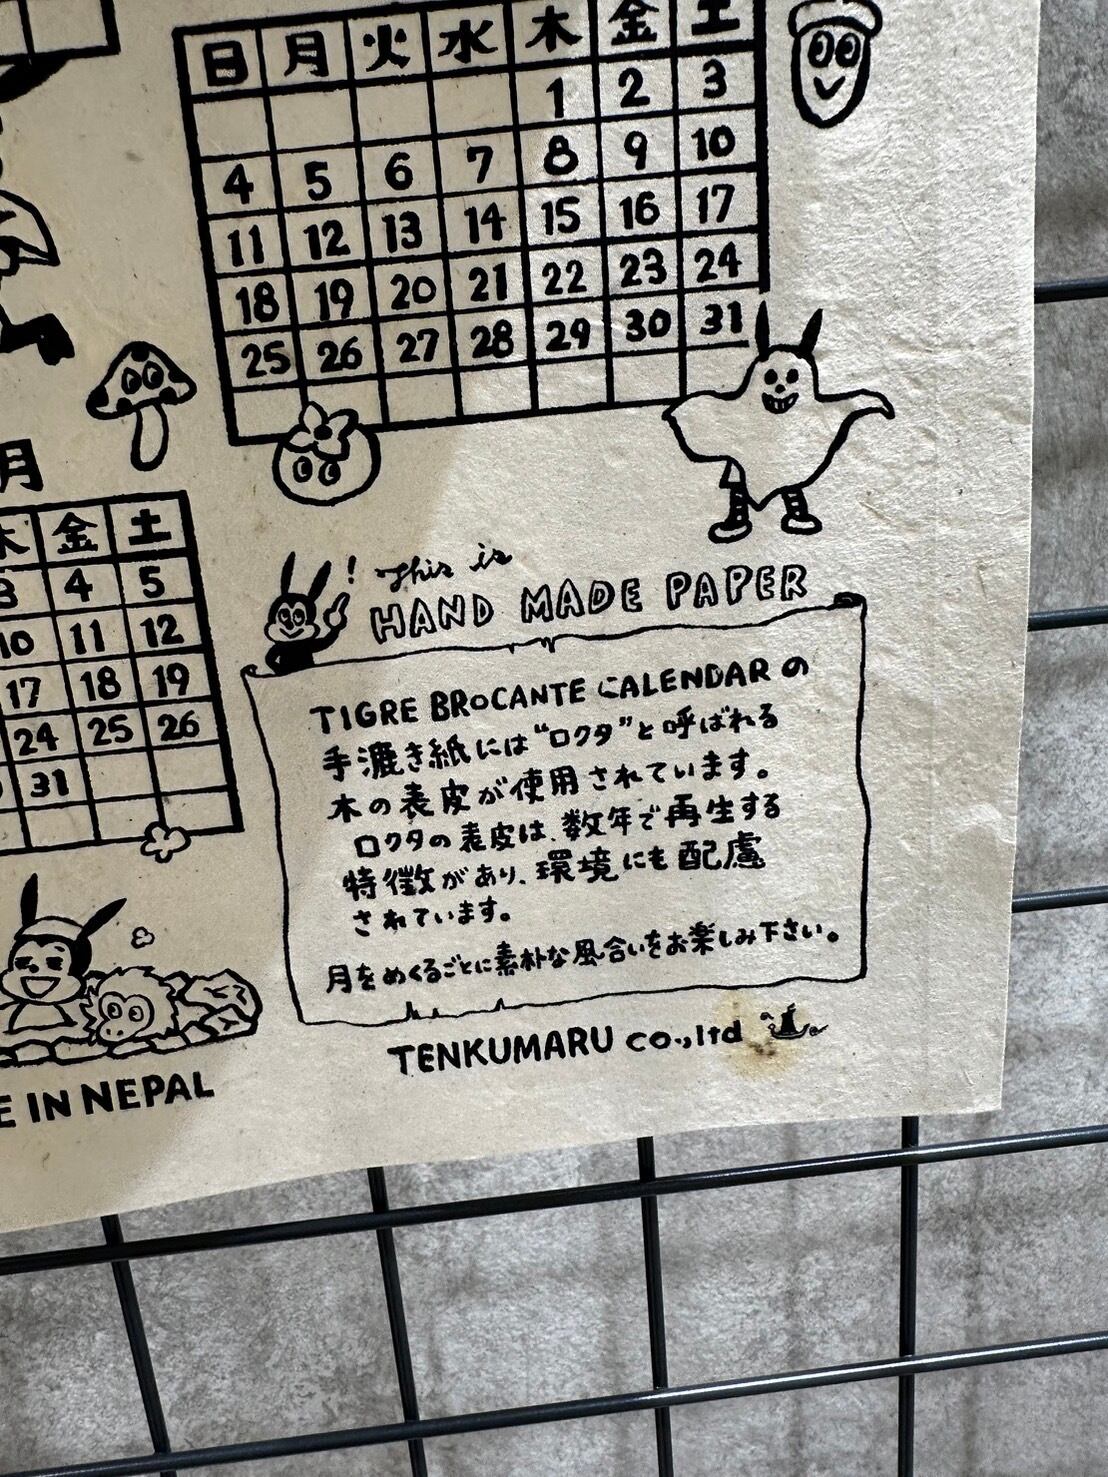 日 月 火 水 木 金 土
1 2 3
4 5 6 7 8 9 10
11 12 13 14 15 16 17
18 19 20 21 22 23 24
25 26 27 28 29 30 31
月
木 金 土
3 4 5
10 11 12
17 18 19
24 25 26
31
! This is
HAND MADE PAPER
TIGRE BROCANTE CALENDARの
手漉き紙には“ロクタ”と呼ばれる
木の表皮が使用されています。
ロクタの表皮は、数年で再生する
特徴があり、環境にも配慮
されています。
月をめくるごとに素朴な風合いをお楽しみ下さい。
TENKUMARU co.,ltd
E IN NEPAL